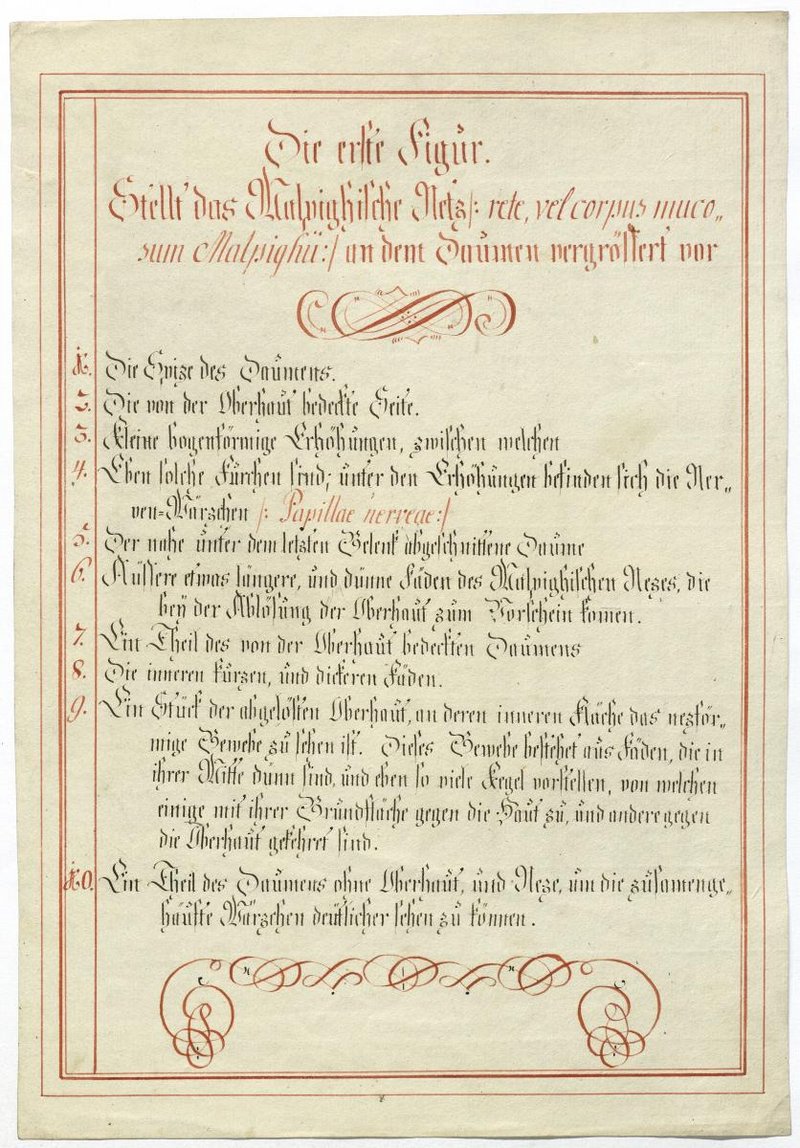 Die erste Figur.
Stellt das Malpighische Netz /: rete, vel corpus muco„
sum Malpighii :/ an dem Daumen vergrössert vor
1. Die Spize des Daumens.
2. Die von der Oberhaut bedeckte Seite.
3. Kleine bogenförmige Erhöhungen, zwischen welchen
4. Eben solche Furchen sind; unter den Erhöhungen befinden sich die Ner„
ven=Wärzchen /: Papillae nerveae :/
5. Der nahe unter dem letzten Gelenk abgeschnittene Daume
6. Äussere etwas längere, und dünne Fäden des Malpighischen Nezes, die
bey der Ablösung der Oberhaut zum Vorschein kom̄en.
7. Ein Theil des von der Oberhaut bedeckten Daumens
8. Die inneren kurzen, und dickeren Fäden.
9. Ein Stück der abgelösten Oberhaut, an deren inneren Fläche das nezför„
mige Gewebe zu sehen ist. Dieses Gewebe bestehet aus Fäden, die in
ihrer Mitte dünn sind, und eben so viele Kegel vorstellen, von welchen
einige mit ihrer Grundfläche gegen die Haut zu, und andere gegen
die Oberhaut gekehret sind.
10. Ein Theil des Daumens ohne Oberhaut, und Neze, um die zusamenge„
häufte Wärzchen deutlicher sehen zu können.